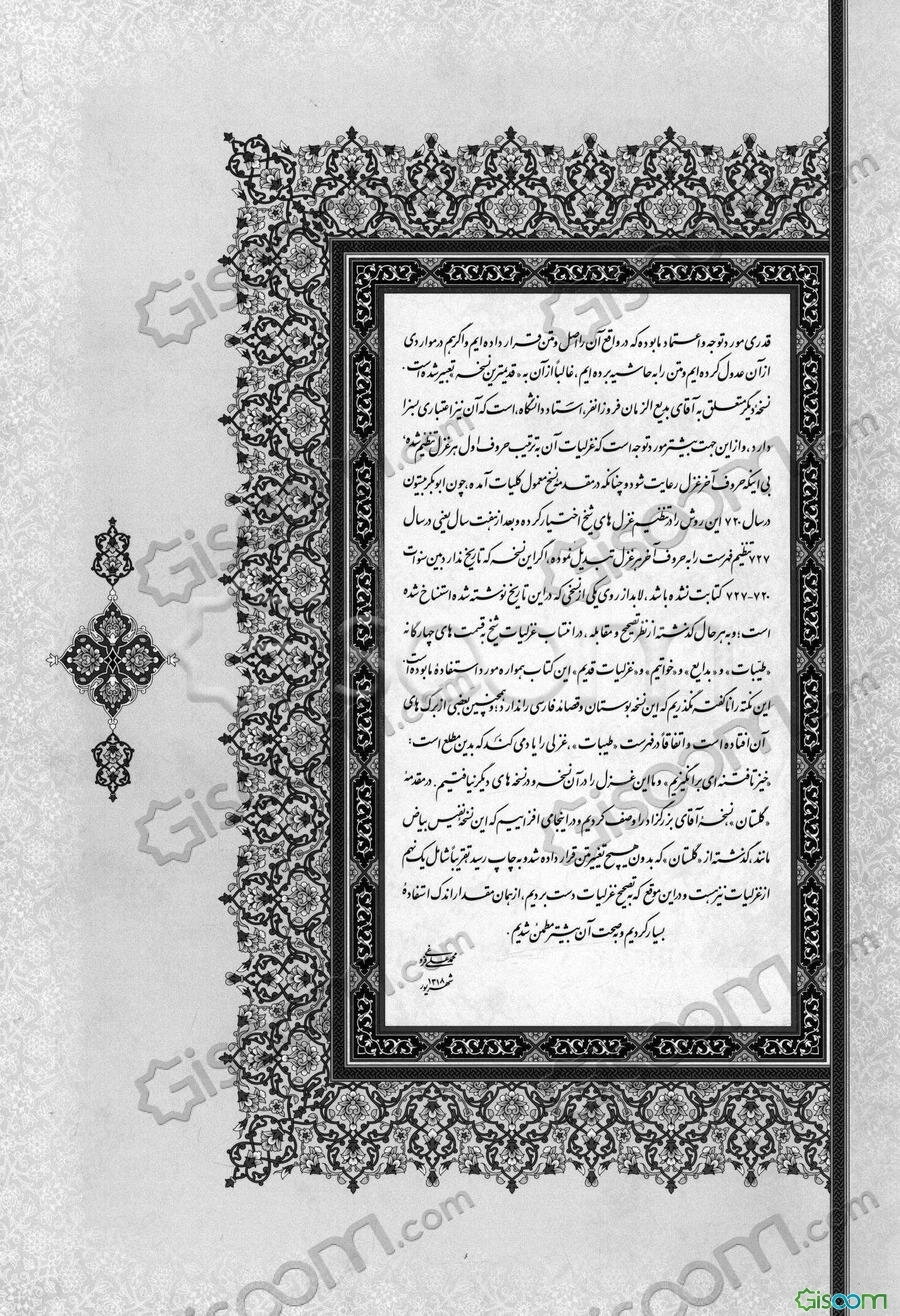 قدری مورد توجه و اعتماد ما بوده که در واقع آن را اصل و متن قرار داده ایم و اگر هم در مواردی
از آن عدول کرده ایم و متن را به حاشیه برده ایم، غالباً از آن به «قدیمترین نسخه» تعبیر شده است.
نسخهٔ دیگر متعلق به آقای بدیع الزمان فروزانفر، استاد دانشگاه، است که آن نیز اعتباری بسزا
دارد، و از این جهت بیشتر مورد توجه است که غزلیات آن به ترتیب حروف اول هر غزل تنظیم شده،
بی اینکه حروف آخر غزل رعایت شود و چنانکه در مقدمهٔ نسخ معمول کلیات آمده، چون ابوبکر بیستون
در سال ۷۲۰ این روش را در تنظیم غزل های شیخ اختیار کرده و بعد از هفت سال یعنی در سال
۷۲۷ تنظیم فهرست را به حروف آخر هر غزل تبدیل نموده، اگر این نسخه که تاریخ ندارد بین سنوات
۷۲۰-۷۲۷ کتابت نشده باشد، لابد از روی یکی از نسخی که در این تاریخ نوشته شده استنساخ شده
است؛ و به هر حال گذشته از نظر تصحیح و مقابله، در انتساب غزلیات شیخ به قسمت های چهارگانه
«طیبات» و «بدایع» و «خواتیم» و «غزلیات قدیم» این کتاب همواره مورد استفادهٔ ما بوده است.
این نکته را ناگفته نگذریم که این نسخه بوستان و قصاید فارسی را ندارد و همچنین بعضی از برگ های
آن افتاده است و اتفاقاً در فهرست «طیبات»، غزلی را یاد می کند که بدین مطلع است:
«خیز تا فتنه ای برانگیزیم» و ما این غزل را در آن نسخه و در نسخه های دیگر نیافتیم. در مقدمهٔ
«گلستان» نسخهٔ آقای بزرگزاد را وصف کردیم و در اینجا می افزاییم که این نسخهٔ نفیس بیاض
مانند، گذشته از «گلستان» که بدون هیچ تغییر متن قرار داده شد و به چاپ رسید تقریباً شامل یک نهم
از غزلیات نیز هست و در این موقع که به تصحیح غزلیات دست بردیم، از همان مقدار اندک استفادهٔ
بسیار کردیم و به صحت آن بیشتر مطمئن شدیم.
محمدعلی فروغی
شهریور ۱۳۱۸
Gisoom.com
Gisoom